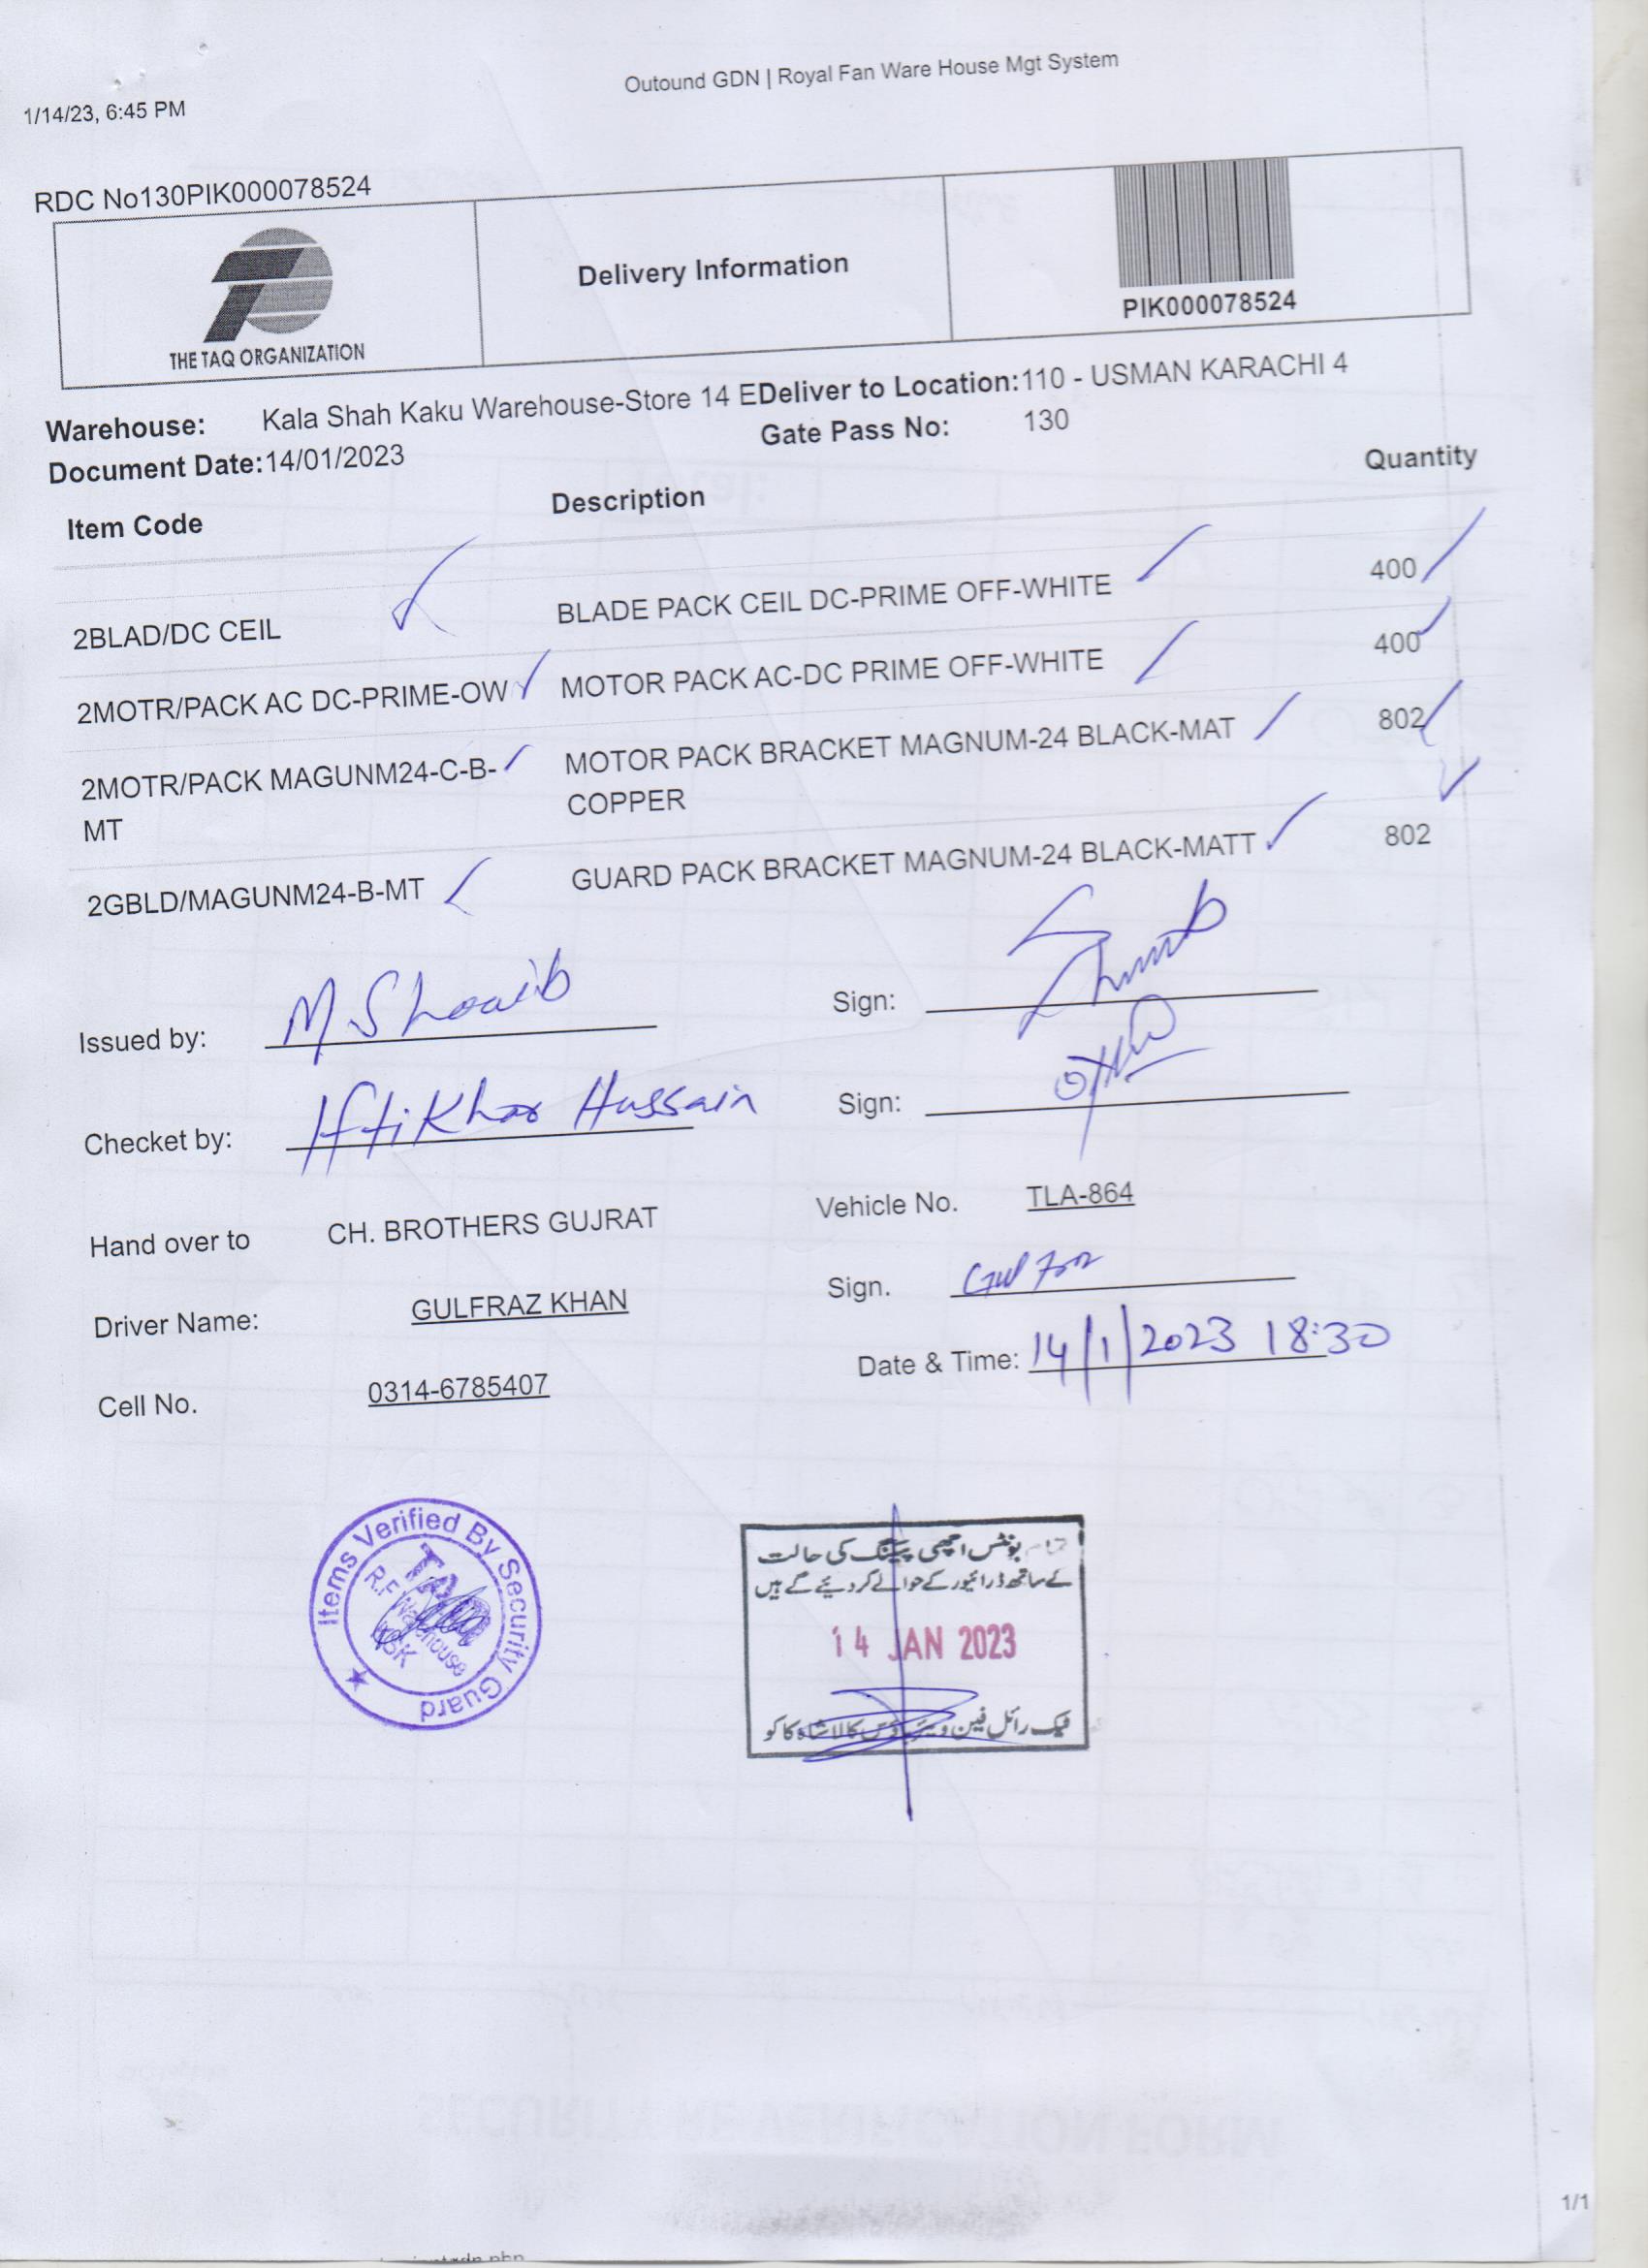 1/14/23, 6:45 PM
Outound GDN | Royal Fan Ware House Mgt System
RDC No130PIK000078524
THE TAQ ORGANIZATION
Delivery Information
PIK000078524
Warehouse: Kala Shah Kaku Warehouse-Store 14 E Deliver to Location: 110 - USMAN KARACHI 4
Document Date: 14/01/2023 Gate Pass No: 130
Item Code Description Quantity
2BLAD/DC CEIL BLADE PACK CEIL DC-PRIME OFF-WHITE 400
2MOTR/PACK AC DC-PRIME-OW MOTOR PACK AC-DC PRIME OFF-WHITE 400
2MOTR/PACK MAGUNM24-C-B- MOTOR PACK BRACKET MAGNUM-24 BLACK-MAT 802
MT COPPER
2GBLD/MAGUNM24-B-MT GUARD PACK BRACKET MAGNUM-24 BLACK-MATT 802
Issued by: M Shoaib Sign:
Checket by: Iftikhar Hussain Sign:
Hand over to CH. BROTHERS GUJRAT Vehicle No. TLA-864
Driver Name: GULFRAZ KHAN Sign.
Cell No. 0314-6785407 Date & Time: 14/1/2023 18:30
Items Verified By Security Guard
TAQ
R.F Warehouse
KSK
تمام یونٹس اچھی پیکنگ کی حالت
کے ساتھ ڈرائیور کے حوالے کر دیئے گے ہیں
14 JAN 2023
ٹیک رائل فین ویئر ہاؤس کالا شاہ کاکو
SECURITY RE VERIFICATION FORM
1/1